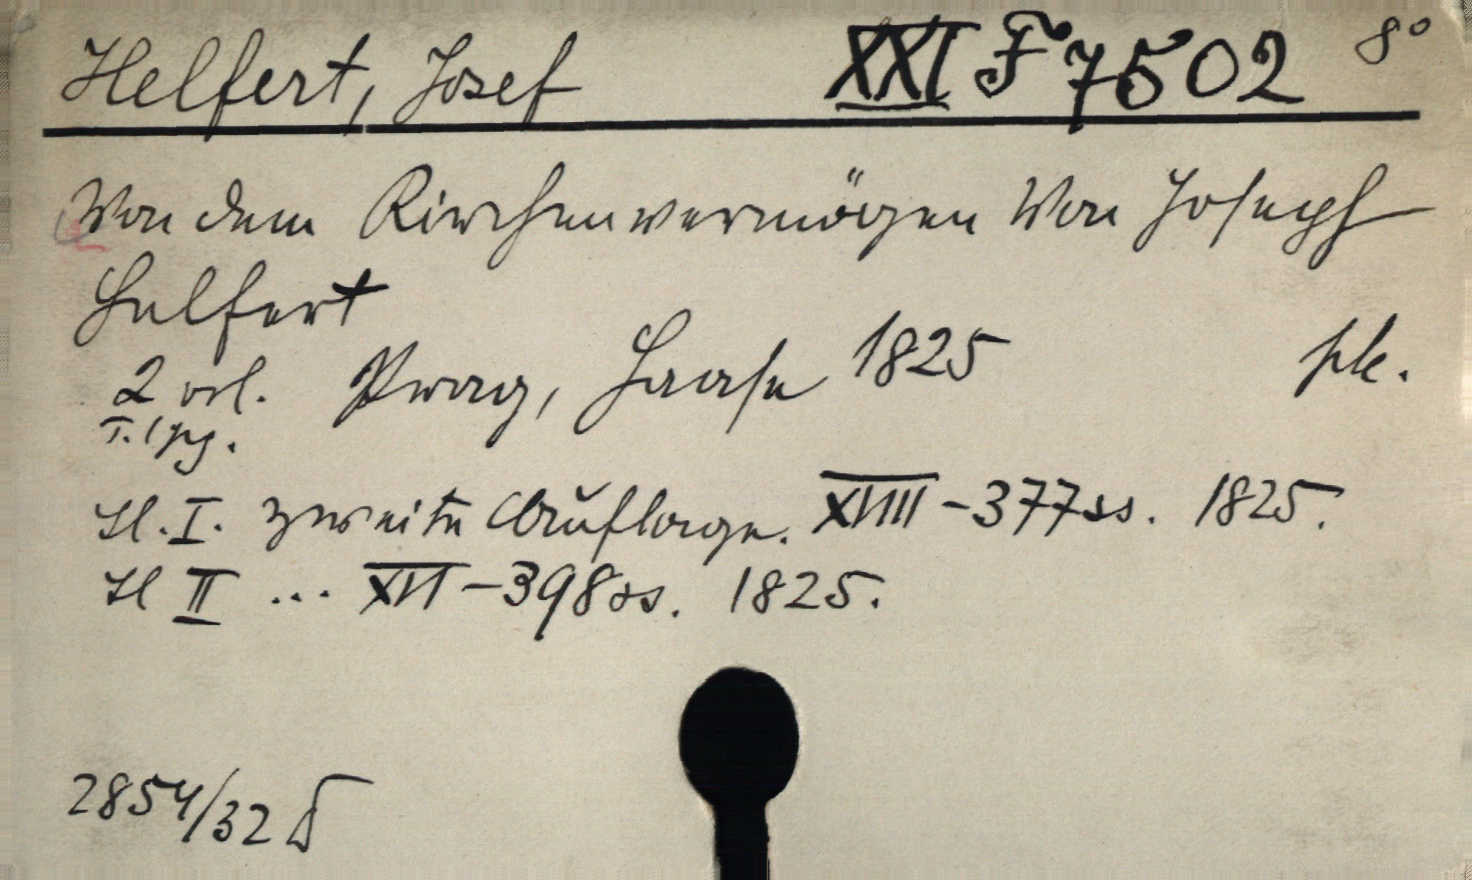 Helfert, Josef XXI F 7502 8°
Von dem Kirchenvermögen Von Joseph
Helfert
2 vol. Prag, Haase 1825 ple.
T. Typ.
Tl. I. zweite Auflage. XVIIII - 377 ss. 1825.
Tl II ... XVI - 398 ss. 1825.
2854/32